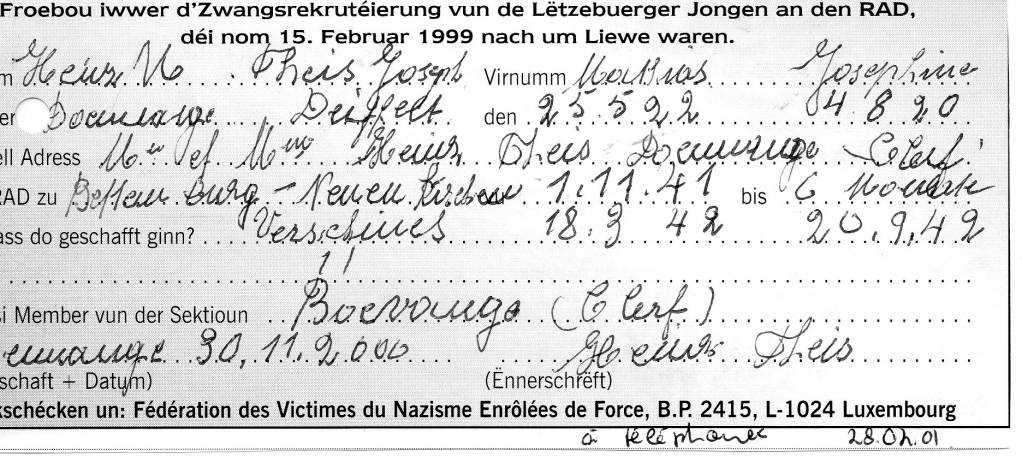 Froebou iwwer d'Zwangsrekrutéierung vun de Lëtzebuerger Jongen an den RAD,
déi nom 15. Februar 1999 nach um Liewe waren.
m Heinz Theis Joseph Virnumm Mathias Josephine
er Doennange Deiffelt den 25 5 22 04 8 20
ell Adress Mr et Mme Heinz Theis Doennange Clerf
RAD zu Bettemburg - Neuenkirchen 1.11.41 bis 6 Monate
ass do geschafft ginn? Verschines 18.3 42 20.9.42
si Member vun der Sektioun Boevange (Clerf)
ennange 30.11.2000 Heinz Theis
schaft + Datum) (Ënnerschrëft)
kschécken un: Fédération des Victimes du Nazisme Enrôlées de Force, B.P. 2415, L-1024 Luxembourg
à téléphoner 28.02.01